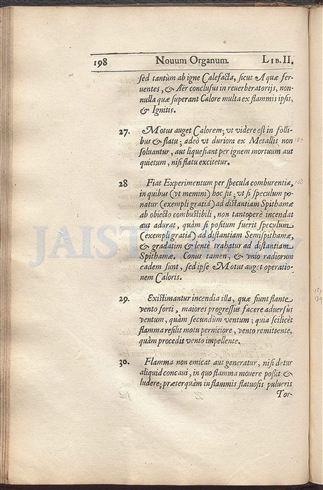 198 Nouum Organum. LIB. II,
sed tantùm ab igne Calefacta, sicut Aquæ fer-
uentes, & Aer conclusus in reuerberatorijs, non-
nulla quæ superant Calore multa ex flammis ipsis,
& Ignitis.
27. Motus auget Calorem; vt videre est in folli-
bus & flatu; adeò vt duriora ex Metallis non
soluantur, aut liquefiant per ignem mortuum aut
quietum, nisi flatu excitetur.
28 Fiat Experimentum per specula comburentia,
in quibus (vt memini) hoc fit, vt si speculum po-
natur (exempli gratiâ) ad distantiam Spithamæ
ab obiecto combustibili, non tantoperè incendat
aut adurat, quàm si positum fuerit speculum
(exempli gratiâ) ad distantiam Semispithamæ,
& gradatim & lentè trahatur ad distantiam
Spithamæ. Conus tamen, & vnio radiorum
eadem sunt, sed ipse Motus auget operatio-
nem Caloris.
29. Existimantur incendia illa, quæ fiunt flante
vento forti, maiores progressus facere aduersùs
ventum, quàm secundùm ventum; quia scilicèt
flamma resilit motu perniciore, vento remittente,
quàm procedit vento impellente.
30. Flamma non emicat aut generatur, nisi detur
aliquid concaui, in quo flamma mouere possit &
ludere; præterquàm in flammis flatuosis pulueris
Tor-